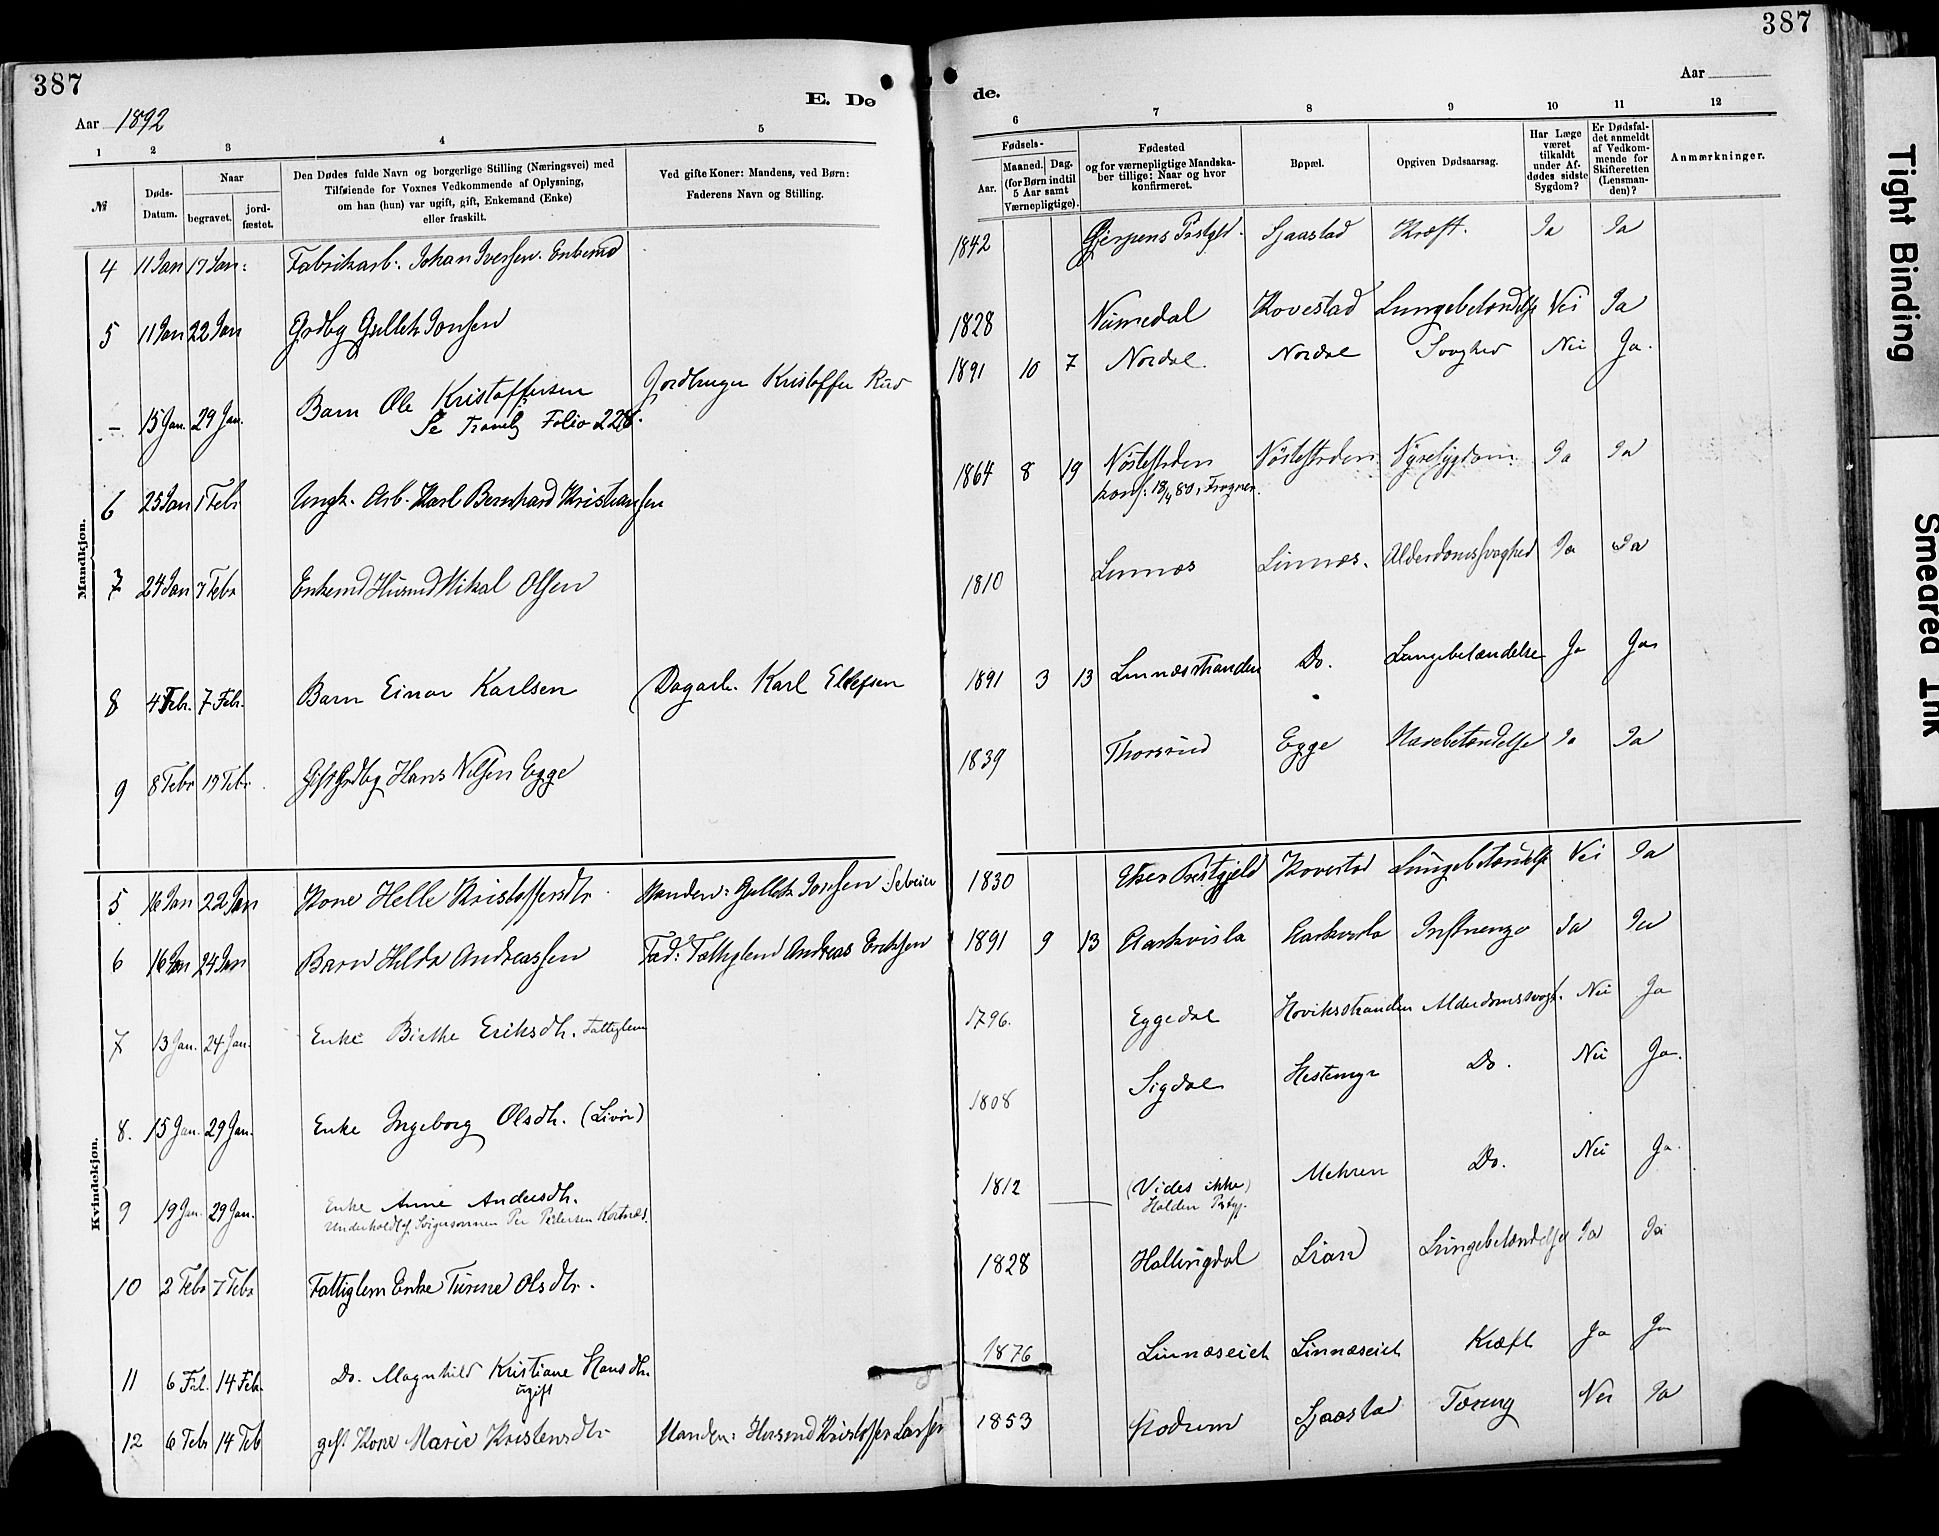 387
387
Aar 1892
E. Dø
de.
Aar
1 2 3 4 5
6 7 8 9 10 11 12
№
Døds-Datum.
Naar
begravet.
jord-fæstet.
Den Dødes fulde Navn og borgerlige Stilling (Næringsvei) med
Tilføiende for Voxnes Vedkommende af Oplysning,
om han (hun) var ugift, gift, Enkemand (Enke)
eller fraskilt.
Ved gifte Koner: Mandens, ved Børn:
Faderens Navn og Stilling.
Fødsels-
Aar.
Maaned. Dag.
(for Børn indtil
5 Aar samt
Værnepligtige).
Fødested
og for værnepligtige Mandska-
ber tillige: Naar og hvor
konfirmeret.
Bopæl.
Opgiven Dødsaarsag.
Har Læge
været
tilkaldt
under Af-
dødes sidste
Sygdom?
Er Dødsfal-
det anmeldt
af Vedkom-
mende for
Skifteretten
(Lensman-
den)?
Anmærkninger.
Mandkjøn.
4 11 Jan 17 Jan. Fabrikarb. Johan Iversen. Enkemd 1842 Gjerpens Prstgld. Sjaastad Kræft. Ja Ja
5 11 Jan 22 Jan Grdbg Gullek Jonsen 1828 Numedal Kovestad Lungebetændelse Nei Ja
– 15 Jan. 29 Jan. Barn Ole Kristoffersen Jordbruger Kristoffer Rud 1891 10 7 Nordal. Nordal Svaghed Nei Ja.
Se Tranby Folio 228.
6 25 Jan 1 Febr Ungk. Arb. Karl Bernhard Kristiansen 1864 8 19 Nøstestrden Nøstestrden Nyresygdom Ja Ja
konf: 18/4 80, Frogner.
7 24 Jan 7 Febr Enkemd Husmd Mikal Olsen 1810 Linnes Linnes. Alderdomssvaghed Ja Ja
8 4 Febr. 7 Febr. Barn Einar Karlsen Dagarb. Karl Ellefsen 1891 3 13 Linnesstranden Do. Lungebetændelse Ja Ja
9 8 Febr 19 Febr. Gift Grdbg Hans Nilsen Egge 1839 Thorsrud Egge Mavebetændelse Ja Ja
Kvindekjøn.
5 16 Jan 22 Jan Kone Helle Kristoffersdtr. Manden: Gullek Jonsen Selveier 1830 Eker Prestgjeld Kovestad Lungebetændelse Nei Ja
6 16 Jan 24 Jan Barn Hilda Andreassen Fad: Fattiglem Andreas Eriksen 1891 9 13 Aarkvisla Aarkvisla Influenza Ja Ja
7 13 Jan. 24 Jan. Enke Birthe Eriksdtr. Fattiglem 1796. Eggedal Hoviksstranden Alderdomssvagh. Nei Ja
8. 15 Jan. 29 Jan. Enke Ingeborg Olsdtr. (Livør) 1808 Sigdal Hestemyr Do. Nei Ja.
9 19 Jan. 29 Jan. Enke Anne Andersdtr. 1812 (Vides ikke) Mehren Do. Nei Ja.
Underholdt af Svigersønnen Per Pedersen Kortnæs. Holden Pstgj.
10 2 Febr 7 Febr Fattiglem Enke Turine Olsdtr. 1828 Hallingdal Lian Lungebetændelse Ja Ja
11 6 Feb. 14 Feb. Do. Magnhild Kristiane Hansdtr. 1876 Linnæseich Linnæseich Kræft Ja Ja
ugift
12 6 Febr 14 Feb gift Kone Marie Kristensdtr. Manden: Husmd Kristoffer Larsen 1853 Modum Sjaastad Tæring Nei Ja
Tight Binding
Smeared Ink